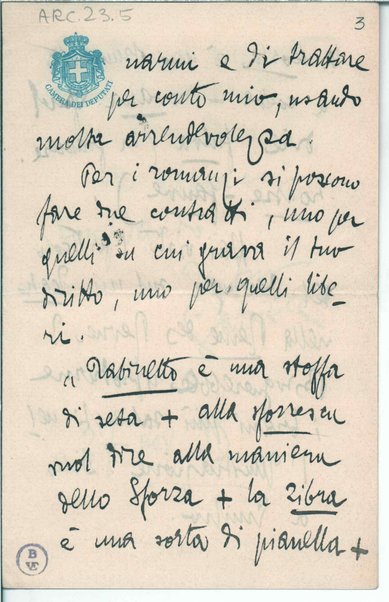 ARC.23.5
3
CAMERA DEI DEPUTATI
narmi e di trattare
per conto mio, usando
molta arrendevolezza.
Per i romanzi si possono
fare due contratti, uno per
quelli su cui grava il tuo
diritto, uno per quelli libe-
ri.
"Rabinetto è una stoffa
di seta + alla sforzesca
vuol dire alla maniera
dello Sforza + la zibra
è una sorta di pianella +
B
VE